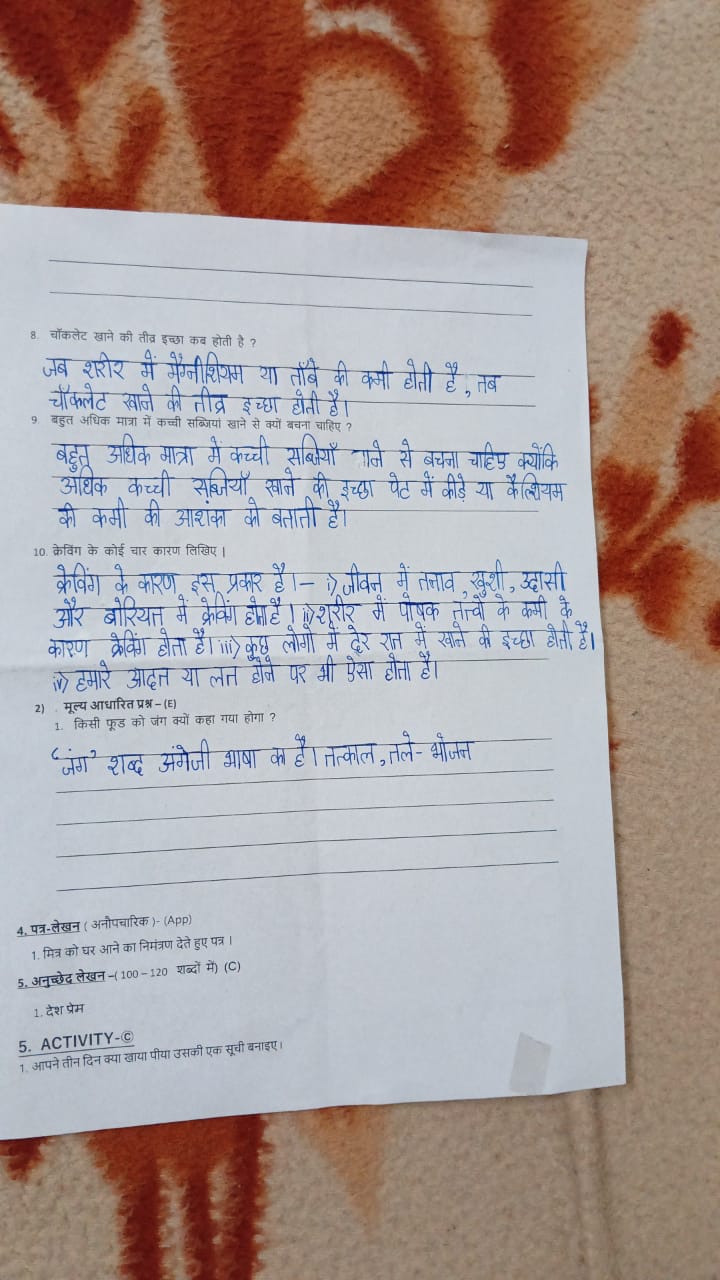 8. चॉकलेट खाने की तीव्र इच्छा कब होती है ?
जब शरीर में मैग्नीशियम या ताँबे की कमी होती है, तब
चॉकलेट खाने की तीव्र इच्छा होती है।
9. बहुत अधिक मात्रा में कच्ची सब्जियां खाने से क्यों बचना चाहिए ?
बहुत अधिक मात्रा में कच्ची सब्जियाँ खाने से बचना चाहिए क्योंकि
अधिक कच्ची सब्जियाँ खाने की इच्छा पेट में कीड़े या कैल्शियम
की कमी की आशंका को बताती है।
10. क्रेविंग के कोई चार कारण लिखिए |
क्रेविंग के कारण इस प्रकार है।- i) जीवन में तनाव, खुशी, उदासी
और बोरियत में क्रेविंग होता है। ii) शरीर में पोषक तत्वों के कमी के
कारण क्रेविंग होता है। iii) कुछ लोगो में देर रात में खाने की इच्छा होती है।
iv) हमारे आदत या लत होने पर भी ऐसा होता है।
2) . मूल्य आधारित प्रश्न – (E)
1. किसी फूड को जंग क्यों कहा गया होगा ?
'जंग' शब्द अंग्रेजी भाषा का है। तत्काल, तले- भोजन
4. पत्र-लेखन ( अनौपचारिक )- (App)
1. मित्र को घर आने का निमंत्रण देते हुए पत्र ।
5. अनुच्छेद लेखन –( 100 – 120 शब्दों में) (C)
1. देश प्रेम
5. ACTIVITY-©
1. आपने तीन दिन क्या खाया पीया उसकी एक सूची बनाइए।